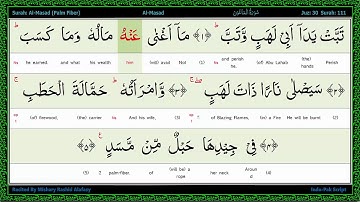 Surah: Al-Masad (Palm Fiber) Al-Masad Juz: 30 Surah: 111
تَبَّتْ يَدَآ اَبِىْ لَهَبٍ وَّتَبَّ ﴿١﴾ مَآ اَغْنٰى عَنْهُ مَالُهٗ وَمَا كَسَبَ
he earned. and what his wealth him (will) avail Not (1) and perish he. (of) Abu Lahab (the) hands Perish
﴿٢﴾ سَيَصْلٰى نَارًا ذَاتَ لَهَبٍ ﴿٣﴾ وَّامْرَاَتُهٗ حَمَّالَةَ الْحَطَبِ
(of) firewood, (the) carrier And his wife, (3) of Blazing Flames, (in) a Fire He will be burnt (2)
﴿٤﴾ فِىْ جِيْدِهَا حَبْلٌ مِّنْ مَّسَدٍ ﴿٥﴾
(5) palm-fiber. of (will be) a rope her neck Around (4)
Recited By Mishary Rashid Alafasy Indo-Pak Script